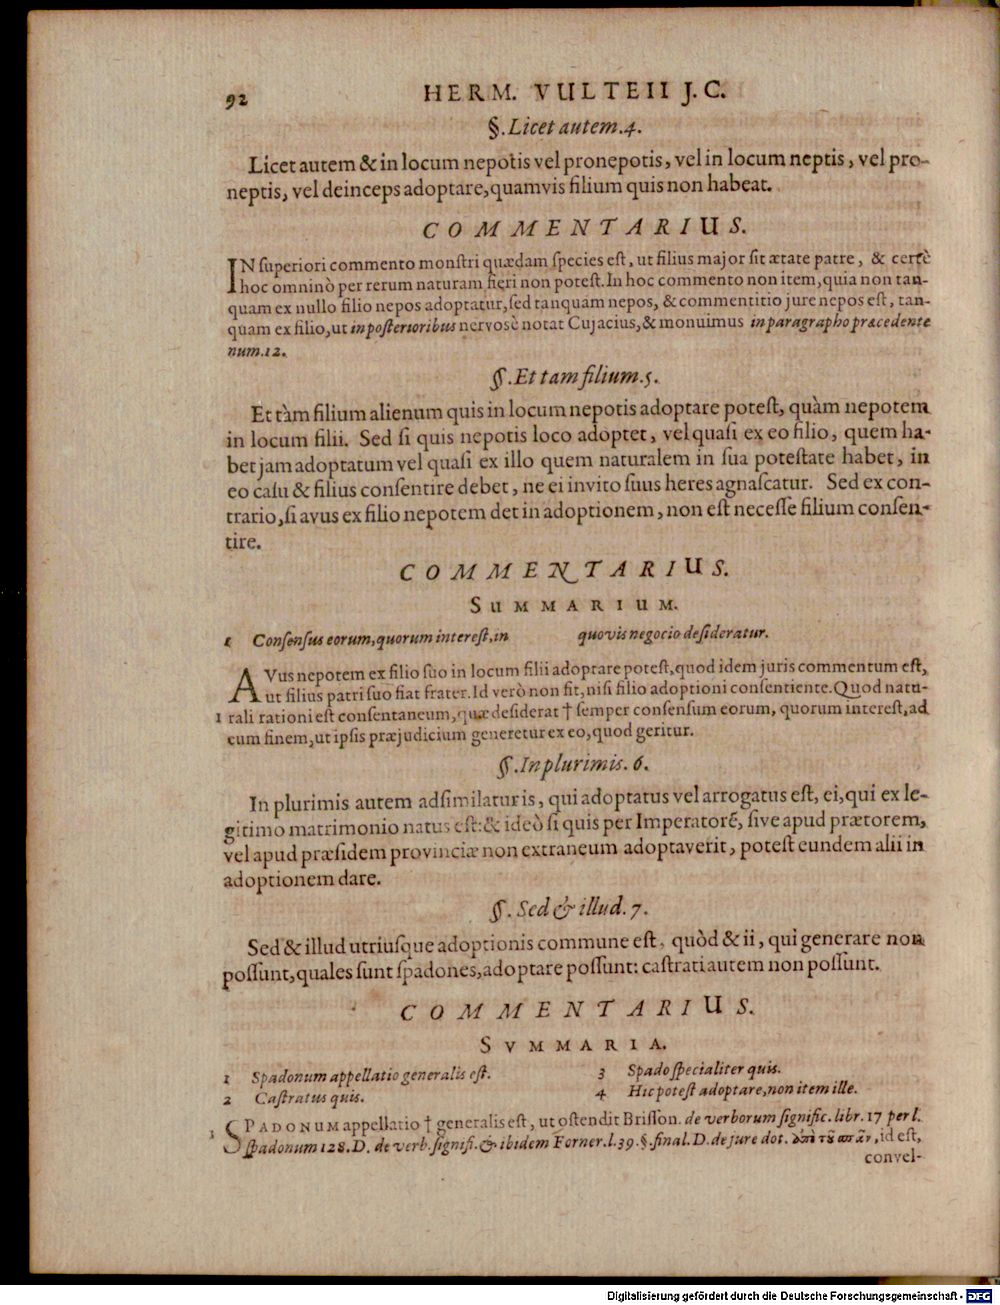 92 HERM. VULTEII J.C.
§. Licet autem. 4.
Licet autem & in locum nepotis vel pronepotis, vel in locum neptis, vel pro-
neptis, vel deinceps adoptare, quamvis filium quis non habeat.
COMMENTARIUS.
IN superiori commento monstri quædam species est, ut filius major sit ætate patre, & certè
hoc omninò per rerum naturam fieri non potest. In hoc commento non item, quia non tan-
quam ex nullo filio nepos adoptatur, sed tanquam nepos, & commentitio jure nepos est, tan-
quam ex filio, ut in posterioribus nervosè notat Cujacius, & monuimus in paragrapho præcedente
num. 12.
§. Et tam filium. 5.
Et tàm filium alienum quis in locum nepotis adoptare potest, quàm nepotem
in locum filii. Sed si quis nepotis loco adoptet, vel quasi ex eo filio, quem ha-
bet jam adoptatum vel quasi ex illo quem naturalem in sua potestate habet, in
eo casu & filius consentire debet, ne ei invito suus heres agnascatur. Sed ex con-
trario, si avus ex filio nepotem det in adoptionem, non est necesse filium consen-
tire.
COMMENTARIUS.
SUMMARIUM.
1 Consensus eorum, quorum interest, in quovis negocio desideratur.
AVus nepotem ex filio suo in locum filii adoptare potest, quod idem juris commentum est,
ut filius patri suo fiat frater. Id verò non fit, nisi filio adoptioni consentiente. Quod natu-
1 rali rationi est consentaneum, quæ desiderat † semper consensum eorum, quorum interest, ad
eum finem, ut ipsis præjudicium generetur ex eo, quod geritur.
§. In plurimis. 6.
In plurimis autem adsimilatur is, qui adoptatus vel arrogatus est, ei, qui ex le-
gitimo matrimonio natus est: & ideò si quis per Imperatorẽ, sive apud prætorem,
vel apud præsidem provinciæ non extraneum adoptaverit, potest eundem alii in
adoptionem dare.
§. Sed & illud. 7.
Sed & illud utriusque adoptionis commune est, quòd & ii, qui generare non
possunt, quales sunt spadones, adoptare possunt: castrati autem non possunt.
COMMENTARIUS.
SVMMARIA.
1 Spadonum appellatio generalis est.
2 Castratus quis.
3 Spado specialiter quis.
4 Hic potest adoptare, non item ille.
1 SPADONUM appellatio † generalis est, ut ostendit Brisson. de verborum signific. libr. 17 per l.
spadonum 128. D. de verb. signifi. & ibidem Forner. l. 39. §. final. D. de jure dot. id est,
convel-
Digitalisierung gefördert durch die Deutsche Forschungsgemeinschaft - DFG